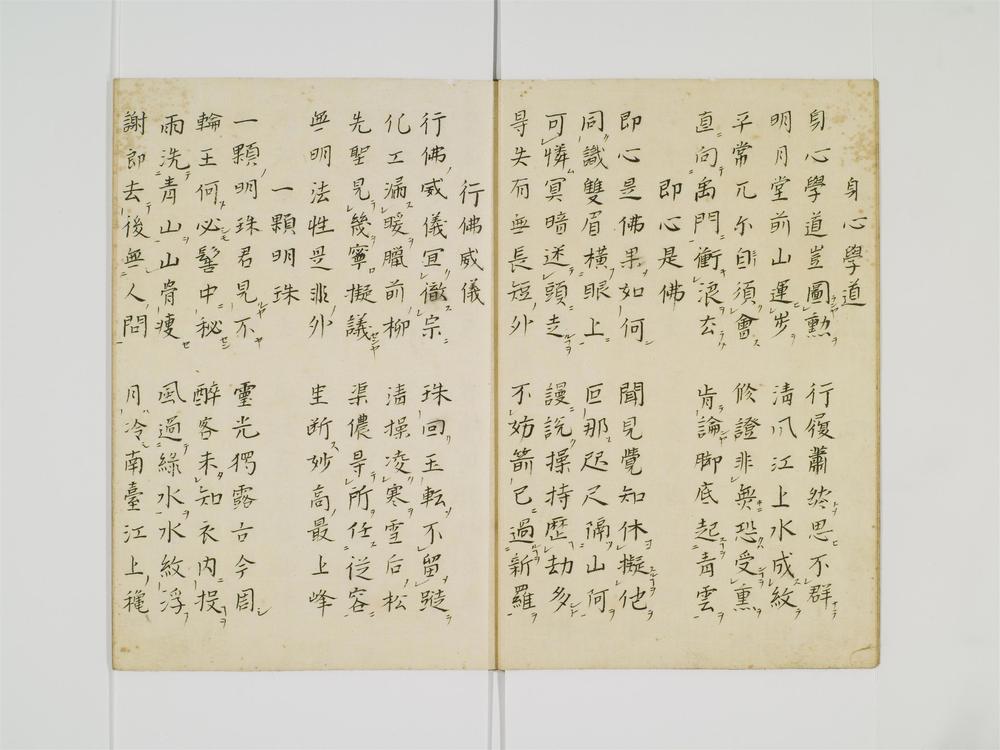 身心學道
身心學道豈圖勲　行履蕭然思不群
明月堂前山運歩　清風江上水成紋
平常兀尓自須會　修證非無恐受熏
直向禹門衝浪去　肯論脚底起青雲
即心是佛
即心是佛果如何　聞見覺知休擬他
同識雙眉横眼上　叵那咫尺隔山何
可憐冥暗迷頭走　謾説操持歴劫多
㝵失有無長短外　不妨箭已過新羅
行佛威儀
行佛威儀亘徹宗　珠回玉転不留蹤
化工漏暖臘前柳　清操凌寒雪后松
先聖見幾寧擬議　渠儂㝵所任従容
無明法性是非外　坐断妙高最上峰
一顆明珠
一顆明珠君見不　靈光獨露古今周
輪王何必髻中秘　醉客未知衣内投
雨洗青山山骨痩　風過緑水水紋浮
謝郎去後無人問　月冷南臺江上穐